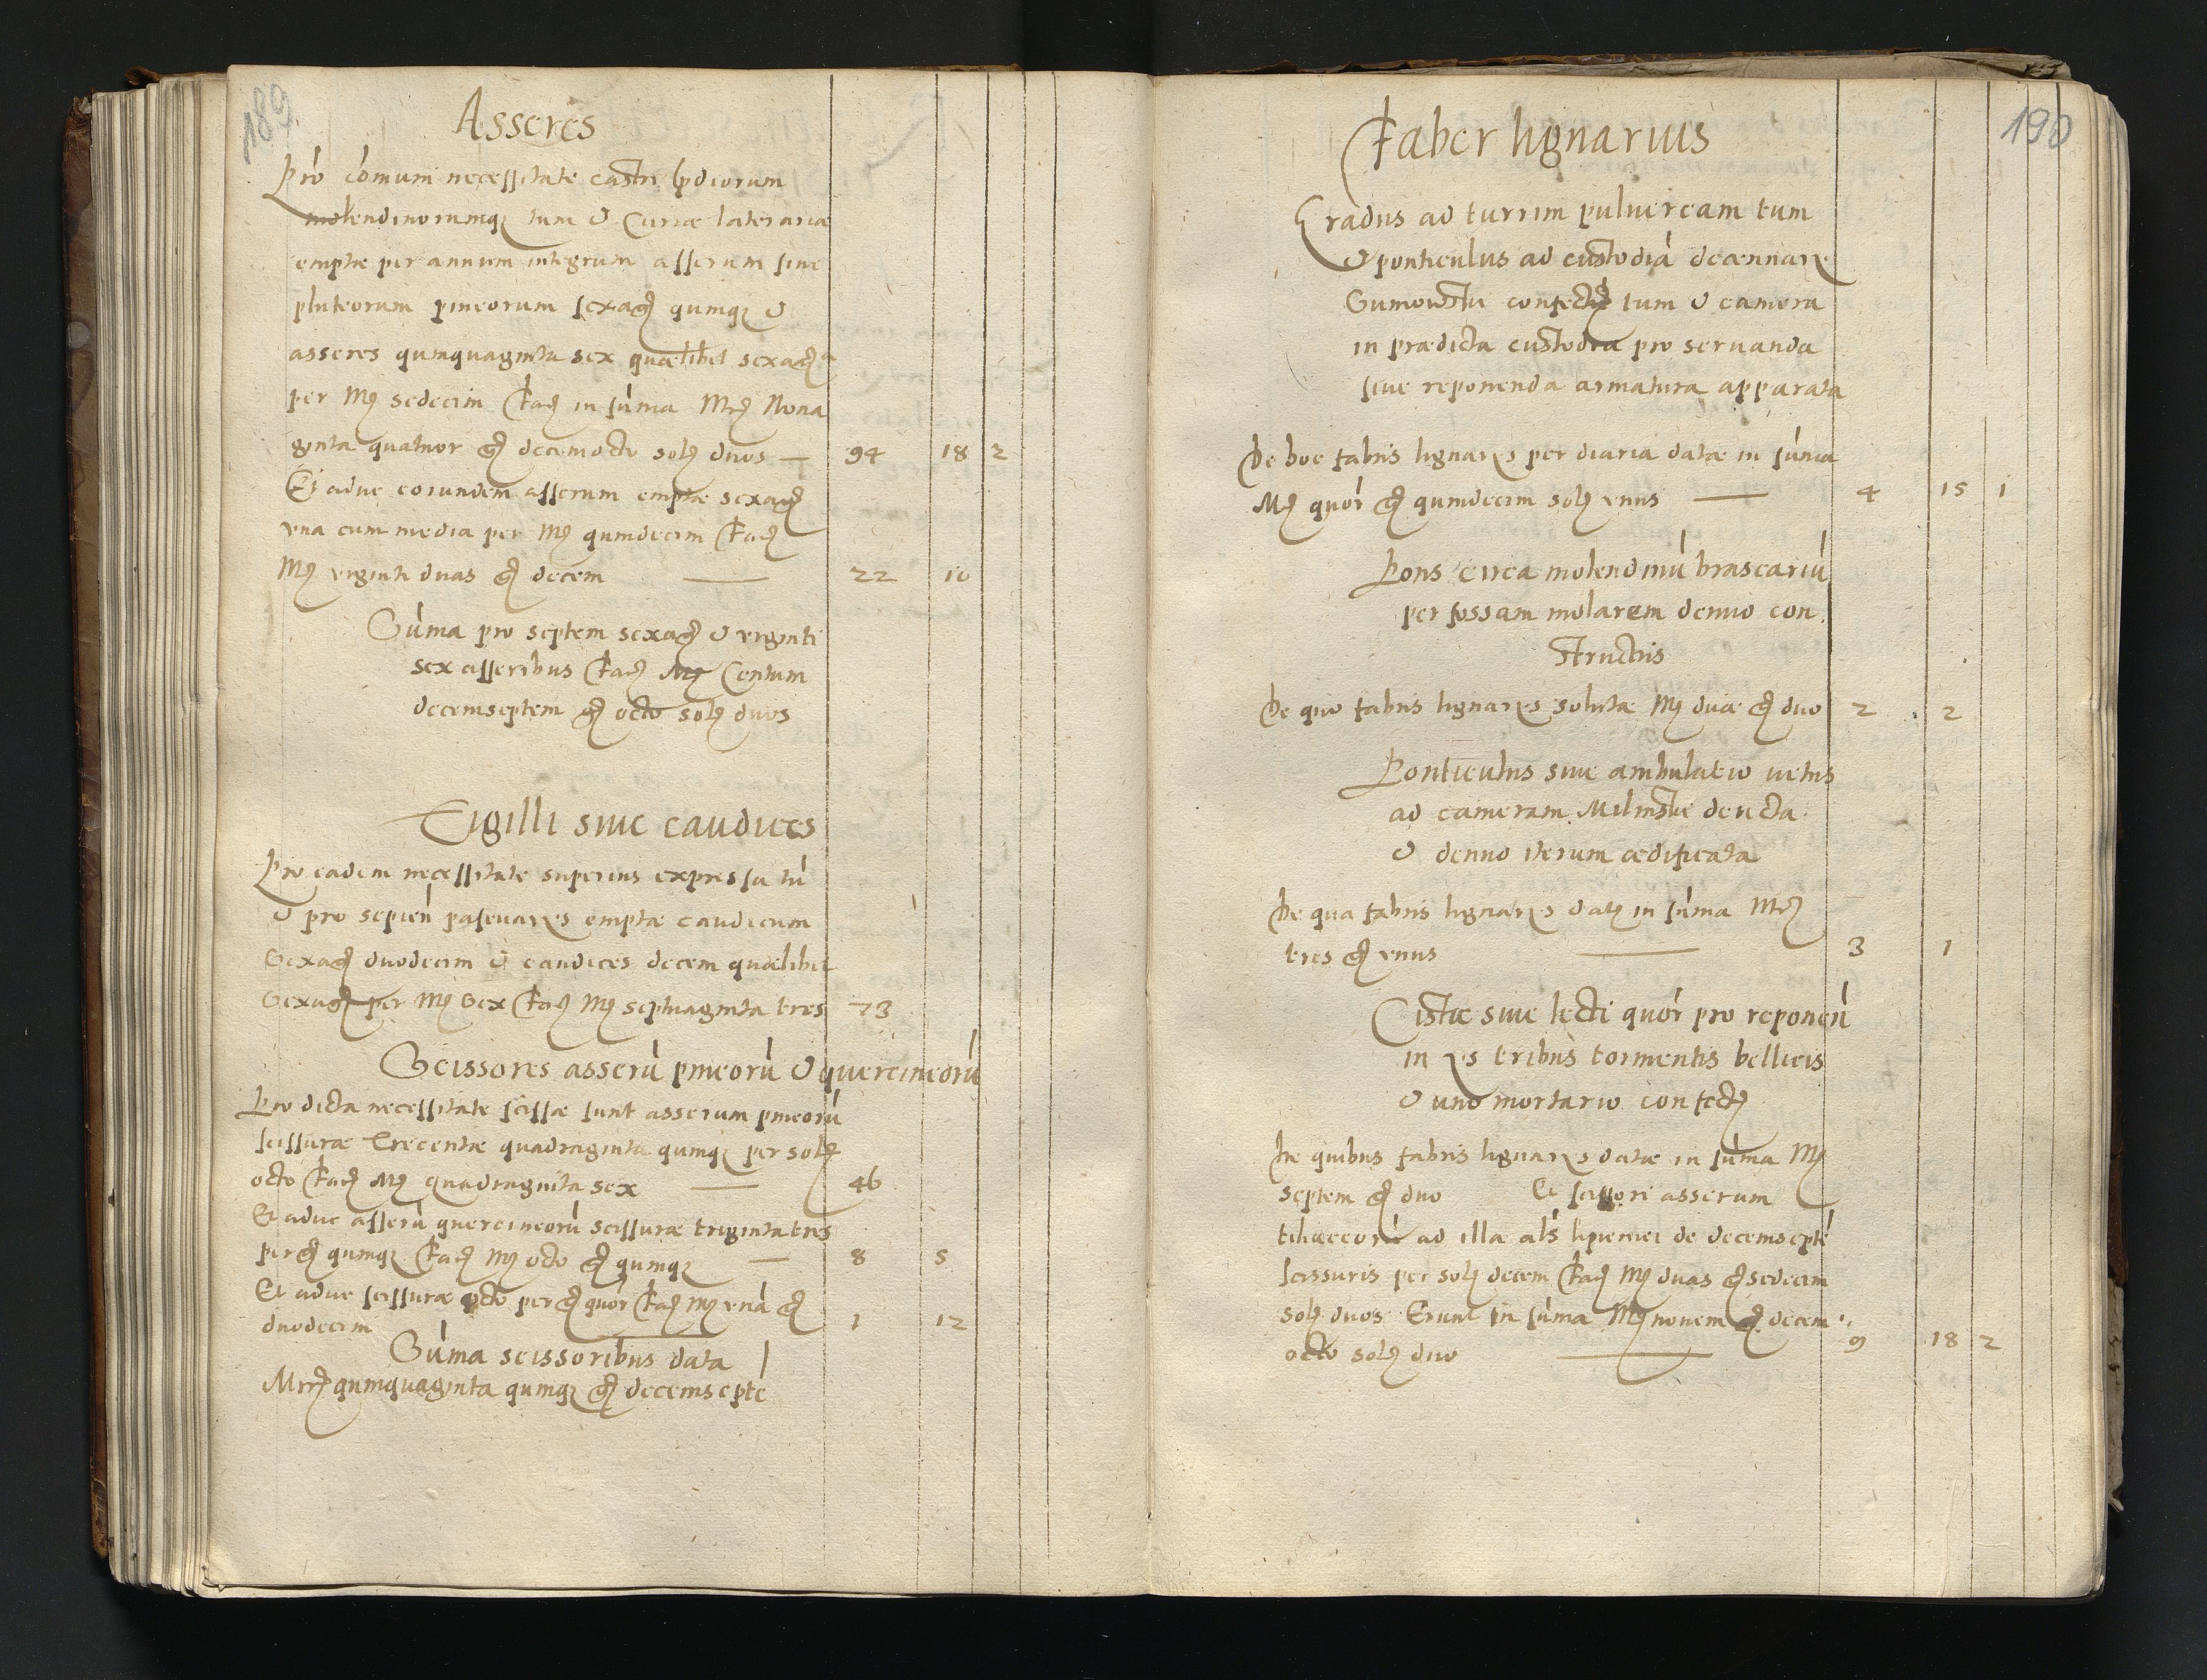 189
Asseres
Pro com̄uni necessitate castri p̄diorum
molendinorumq; tum & Curiæ laterariæ
emptæ per annum integrum asserum siue
pluteorum pineorum sexag: quinq; &
asseres quinquaginta sex quælibet sexag:
per M͛ sedecim fac: in sum̄a Mr͛ Nona
ginta quatuor g͛ decemocto sol: duos — 94 18 2
Et aduc eorundem asserum emptæ sexag:
vna cum media per M͛ quindecim fac:
M͛ viginti duas g͛ decem — 22 10
Sum̄a pro septem sexag: & viginti
sex asseribus fac: M͛ Centum
decemseptem g͛ octo sol: duos
Tigilli siue caudices
Pro eadem necessitate superius expressa tū
& pro sepien̄ emptæ caudicum
Sexag: duodecim & caudices decem quælibet
Sexag: per M͛ Sex fac: M͛ septuaginta tres 73
Scissores asserū pineorū & quercineorū
Pro dicta necessitate scissæ sunt asserum pineorū
scissuræ trecentæ quadraginta quinq; per sol:
octo fac: M͛ quadraginta sex — 46
Et aduc asserū quercineorū scissuræ triginta tres
per g͛ quinq; fac: M͛ octo g͛ quinq; — 8 5
Et aduc scissuræ octo per g͛ quor̄ fac: M͛ vnā g͛
duodecim — 1 12
Sum̄a scissoribus data
Mr͛ quinquaginta quinq; g͛ decemseptē
190
Faber lignarius
Gradus ad turrim pulueream tum
& ponticulus ad custodiā
confect: tum & camera
in prædicta custodia pro seruanda
siue reponenda armatura apparata
De hoc fabris lignarys per diaria datæ in sum̄a
M͛ quor̄ g͛ quindecim sol: vnus — 4 15 1
Pons circa molendinū braseariū
per fossam molarem denuo con
structus
De quo fabris lignarys solutæ M͛ duæ g͛ duo 2 2
Ponticulus siue ambulatio vetus
ad cameram Milinstie deiecta
& denuo iterum ædificata
De qua fabris lignarys dat: in sum̄a Mr͛
tres g͛ vnus — 3 1
Cistæ siue lecti quor̄ pro reponen̄
in ys tribus tormentis bellicis
& uno mortario confect:
De quibus fabris lignarys datæ in sum̄a M͛
septem g͛ duo Et scissori asserum
tiliaceorū ad illa als̄ lipieniei de decemseptē
scissuris per sol: decem fac: M͛ duas g͛ sedecim
sol: duos Erunt in sum̄a M͛ nouem g͛ decem
octo sol: duo — 9 18 2